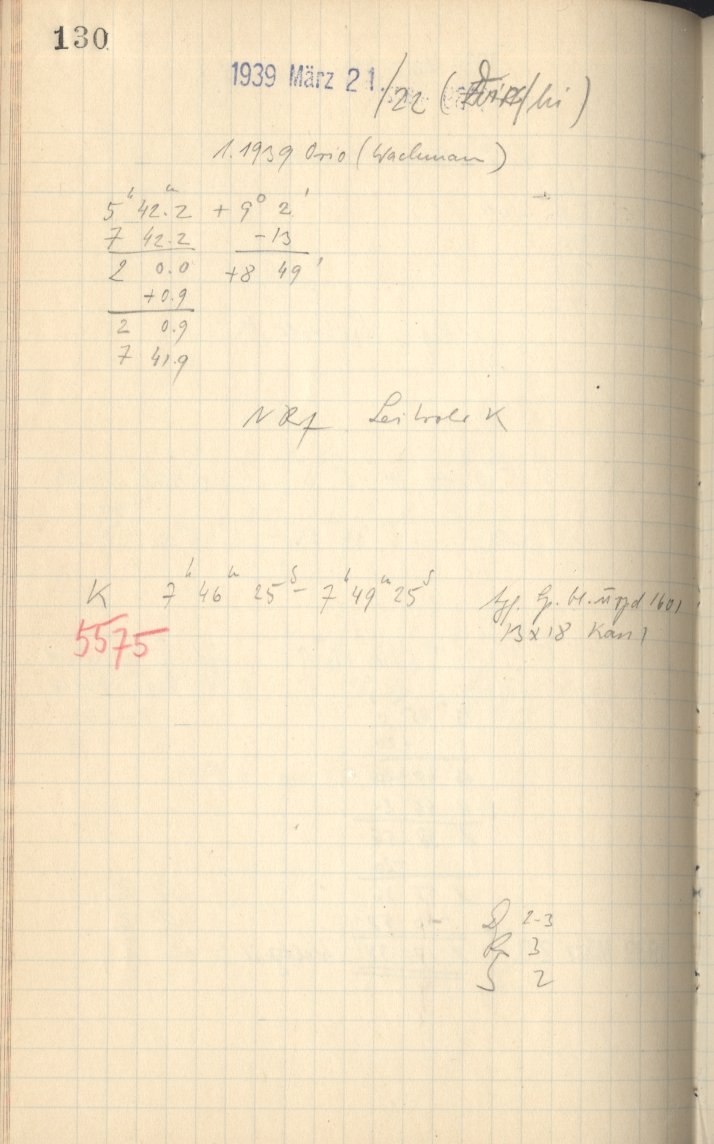 130
1939 März 21./22 (
1.1939 Orio (Wachmann)
5ʰ 42ᵐ.2 + 9° 2'
7 42.2 -13
2 0.0 +8 49'
+0.9
2 0.9
7 41.9
NRf Leitrohr K
K 7ʰ 46ᵐ 25ˢ - 7ʰ 49ᵐ 25ˢ
13x18
5575
D 2-3
R 3
S 2